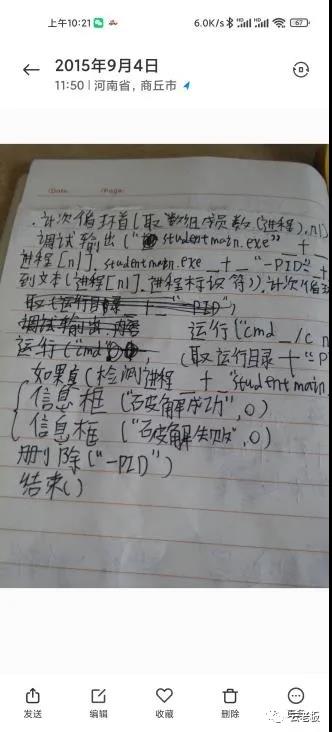 上午10:21
6.0K/s
67
2015年9月4日
11:50 | 河南省，商丘市
Date: Page:
计次循环首(取数组成员数(进程),n1)
调试输出("studentmain.exe"_+_
进程[n1],studentmain.exe_+_"-PID"_+
到文本(进程[n1].进程标识符)),计次循环
取(运行目录_+_"-PID")
调试输出
运行("cmd_/c n
运行("cmd" (取运行目录+"P
如果真(检测进程_+_"studentmain.
信息框("破解成功",0)
信息框("破解失败",0)
删除("-PID")
结束()
发送 编辑 收藏 删除
云老板